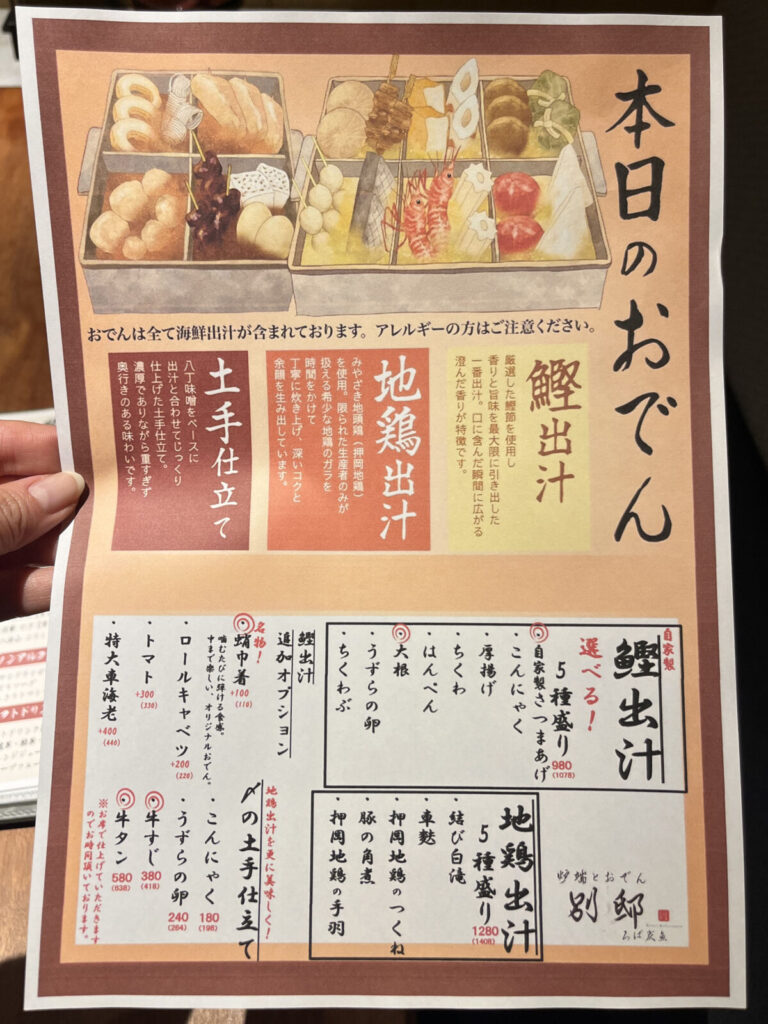 本日のおでん
おでんは全て海鮮出汁が含まれております。アレルギーの方はご注意ください。
鰹出汁
厳選した鰹節を使用し
香りと旨味を最大限に引き出した
一番出汁。口に含んだ瞬間に広がる
澄んだ香りが特徴です。
地鶏出汁
みやざき地頭鶏(押岡地鶏)
を使用。限られた生産者のみが
扱える希少な地鶏のガラを
時間をかけて
丁寧に炊き上げ、深いコクと
余韻を生み出しています。
土手仕立て
八丁味噌をベースに
出汁と合わせてじっくり
仕上げた土手仕立て。
濃厚でありながら重すぎず
奥行きのある味わいです。
自家製
鰹出汁
選べる!
5種盛り 980
(1078)
・自家製さつまあげ
・こんにゃく
・厚揚げ
・ちくわ
・はんぺん
・大根
・うずらの卵
・ちくわぶ
鰹出汁
追加オプション
名物!
・蛸巾着 +100
(110)
噛むたびに弾ける食感。
中まで楽しい、オリジナルおでん。
・ロールキャベツ +200
(220)
・トマト +300
(330)
・特大車海老 +400
(440)
地鶏出汁
5種盛り 1280
(1408)
・結び白滝
・車麩
・押岡地鶏のつくね
・豚の角煮
・押岡地鶏の手羽
地鶏出汁を更に美味しく!
〆の土手仕立て
・こんにゃく 180
(198)
・うずらの卵 240
(264)
・牛すじ 380
(418)
・牛タン 580
(638)
※お席で仕上げていただきます
のでお時間頂いております。
炉端とおでん
別邸
ろばた魚